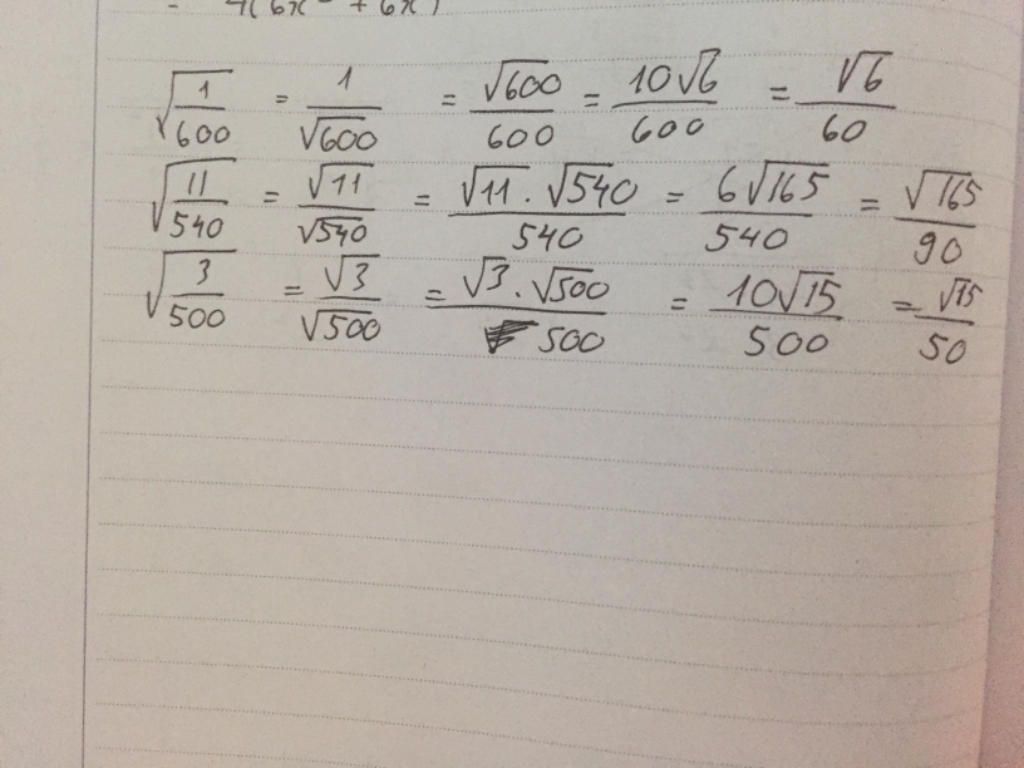 = 4(6x + 6x)
√(1/600) = 1/√600 = √600/600 = 10√6/600 = √6/60
√(11/540) = √11/√540 = √11 . √540/540 = 6√165/540 = √165/90
√(3/500) = √3/√500 = √3 . √500/500 = 10√15/500 = √15/50